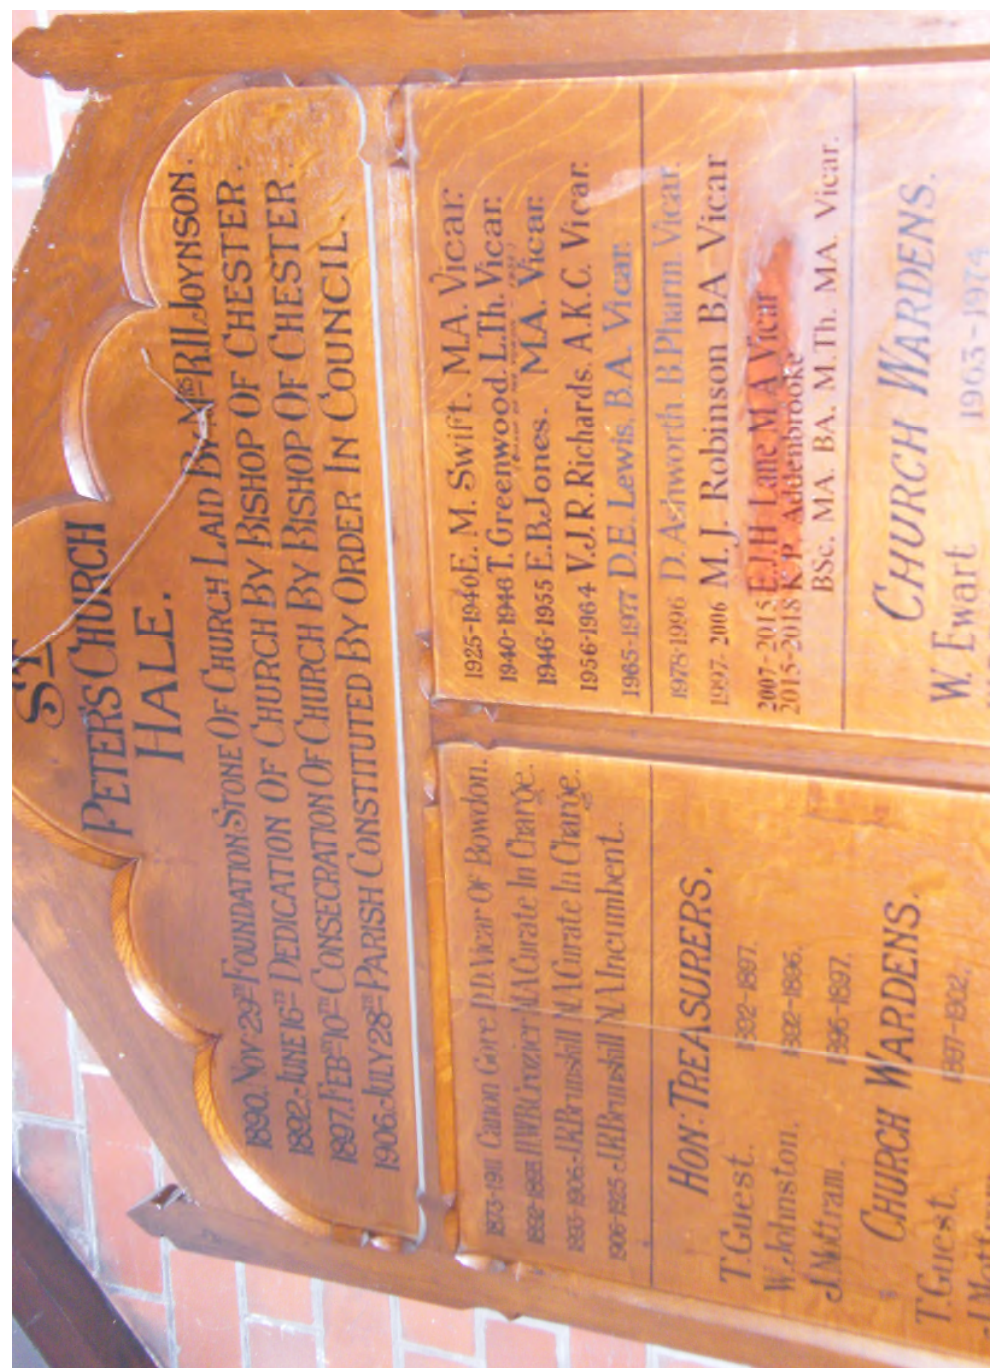 ST
PETER'S CHURCH
HALE.
1890. NOV. 29TH FOUNDATION STONE OF CHURCH LAID BY MRS R.H. JOYNSON.
1892. JUNE 16TH DEDICATION OF CHURCH BY BISHOP OF CHESTER.
1897. FEB. 10TH CONSECRATION OF CHURCH BY BISHOP OF CHESTER.
1906. JULY 28TH PARISH CONSTITUTED BY ORDER IN COUNCIL.
1873-1911 Canon Gore D.D. Vicar Of Bowdon.
1892-1893. H.W.B. Crozier M.A Curate In Charge.
1893-1906. J.R. Brunskill M.A Curate In Charge.
1906-1925. J.R. Brunskill M.A Incumbent.
HON: TREASURERS.
T. Guest. 1892-1897.
W. Johnston. 1892-1896.
J. Mottram. 1896-1897.
CHURCH WARDENS.
T. Guest. 1897-1902.
1925-1940 E. M. Swift. M.A. Vicar.
1940-1946 T. Greenwood. L.Th. Vicar.
1946-1955 E.B. Jones. M.A. Vicar.
1956-1964 V.J.R. Richards. A.K.C. Vicar.
1965-1977 D.E. Lewis. B.A. Vicar.
1978-1996 D. Ashworth. B.Pharm. Vicar.
1997-2006 M. J. Robinson BA Vicar
2007-2015 E.J.H Lane M A Vicar
2015-2018 K.P. Addenbrooke
BSc. MA. BA. M.Th. MA. Vicar.
CHURCH WARDENS.
W. Ewart 1963-1974